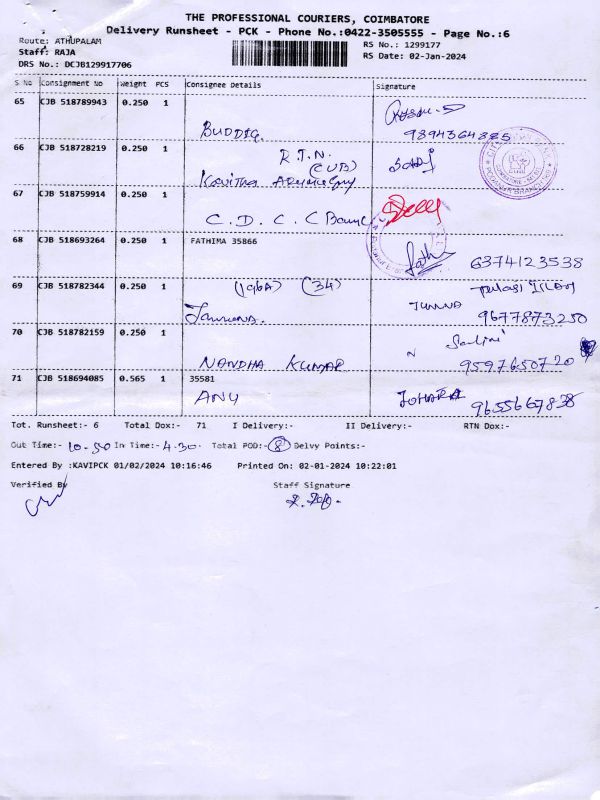 THE PROFESSIONAL COURIERS, COIMBATORE
Delivery Runsheet - PCK - Phone No.:0422-3505555 - Page No.:6
Route: ATHUPALAM
RS No.: 1299177
Staff: RAJA
RS Date: 02-Jan-2024
DRS No.: DCJB129917706
S No Consignment No Weight PCS Consignee Details Signature
65 CJB 518789943 0.250 1
BUDDIG
66 CJB 518728219 0.250 1 R.T.N.
(CUB)
Kavitha
67 CJB 518759914 0.250 1
C. D. C. C Bank
68 CJB 518693264 0.250 1 FATHIMA 35866
6374123538
69 CJB 518782344 0.250 1 (196A) (34)
JAMUNA. JUMNA 9677873250
70 CJB 518782159 0.250 1
NANDHA KUMAR 9597650720
71 CJB 518694085 0.565 1 35581
ANU JOHARA 9655667838
Tot. Runsheet:- 6 Total Dox:- 71 I Delivery:- II Delivery:- RTN Dox:-
Out Time:- 10.50 In Time:- 4.30. Total POD:- 8 Delvy Points:-
Entered By :KAVIPCK 01/02/2024 10:16:46 Printed On: 02-01-2024 10:22:01
Verified By Staff Signature